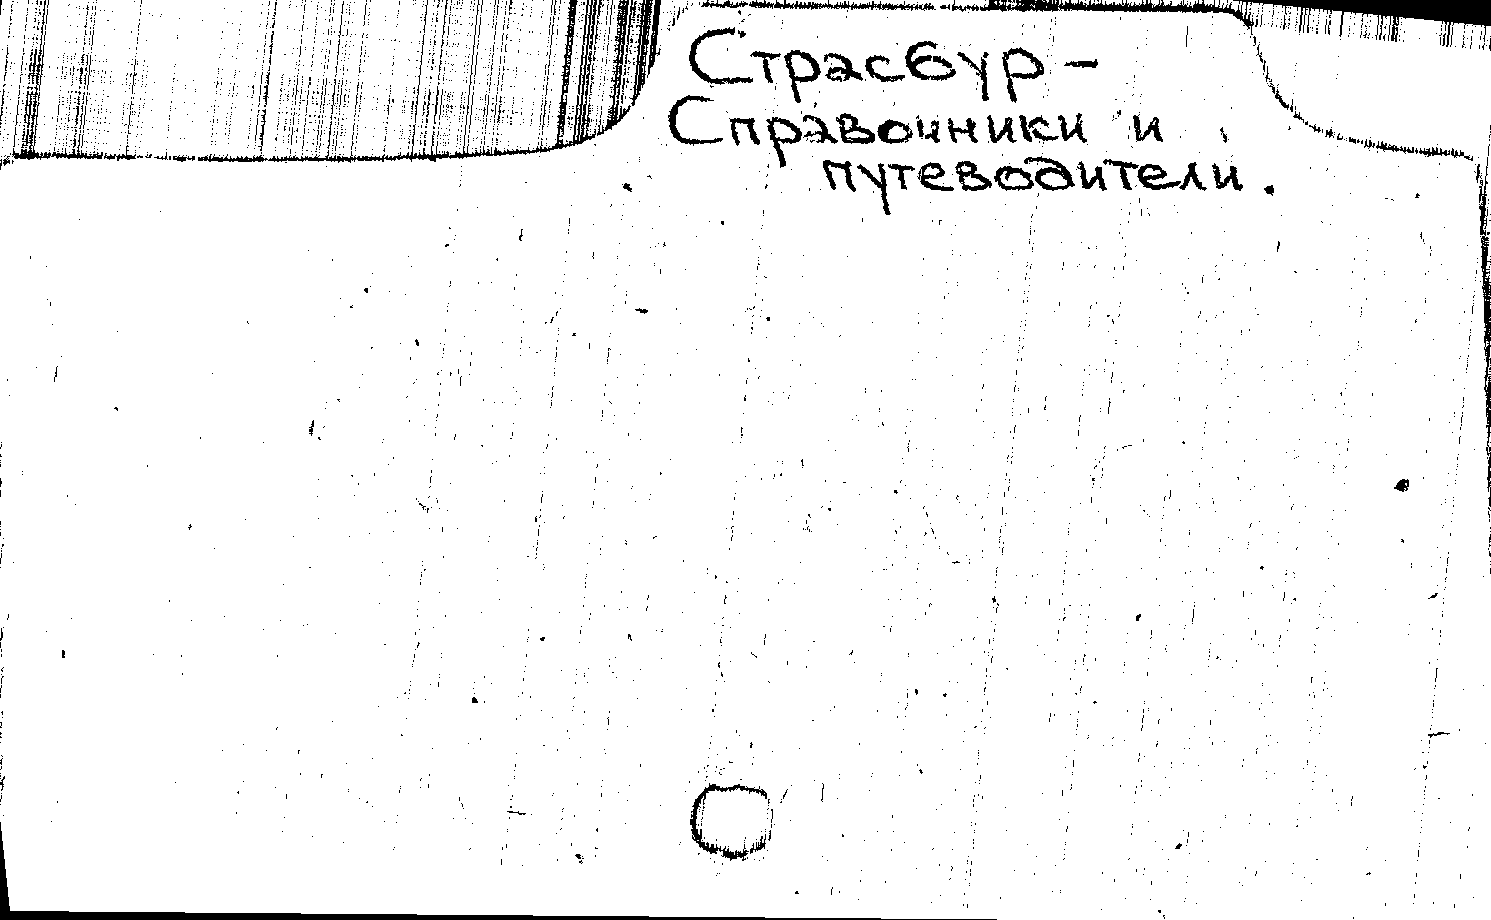 Страсбур –
Справочники и
путеводители.